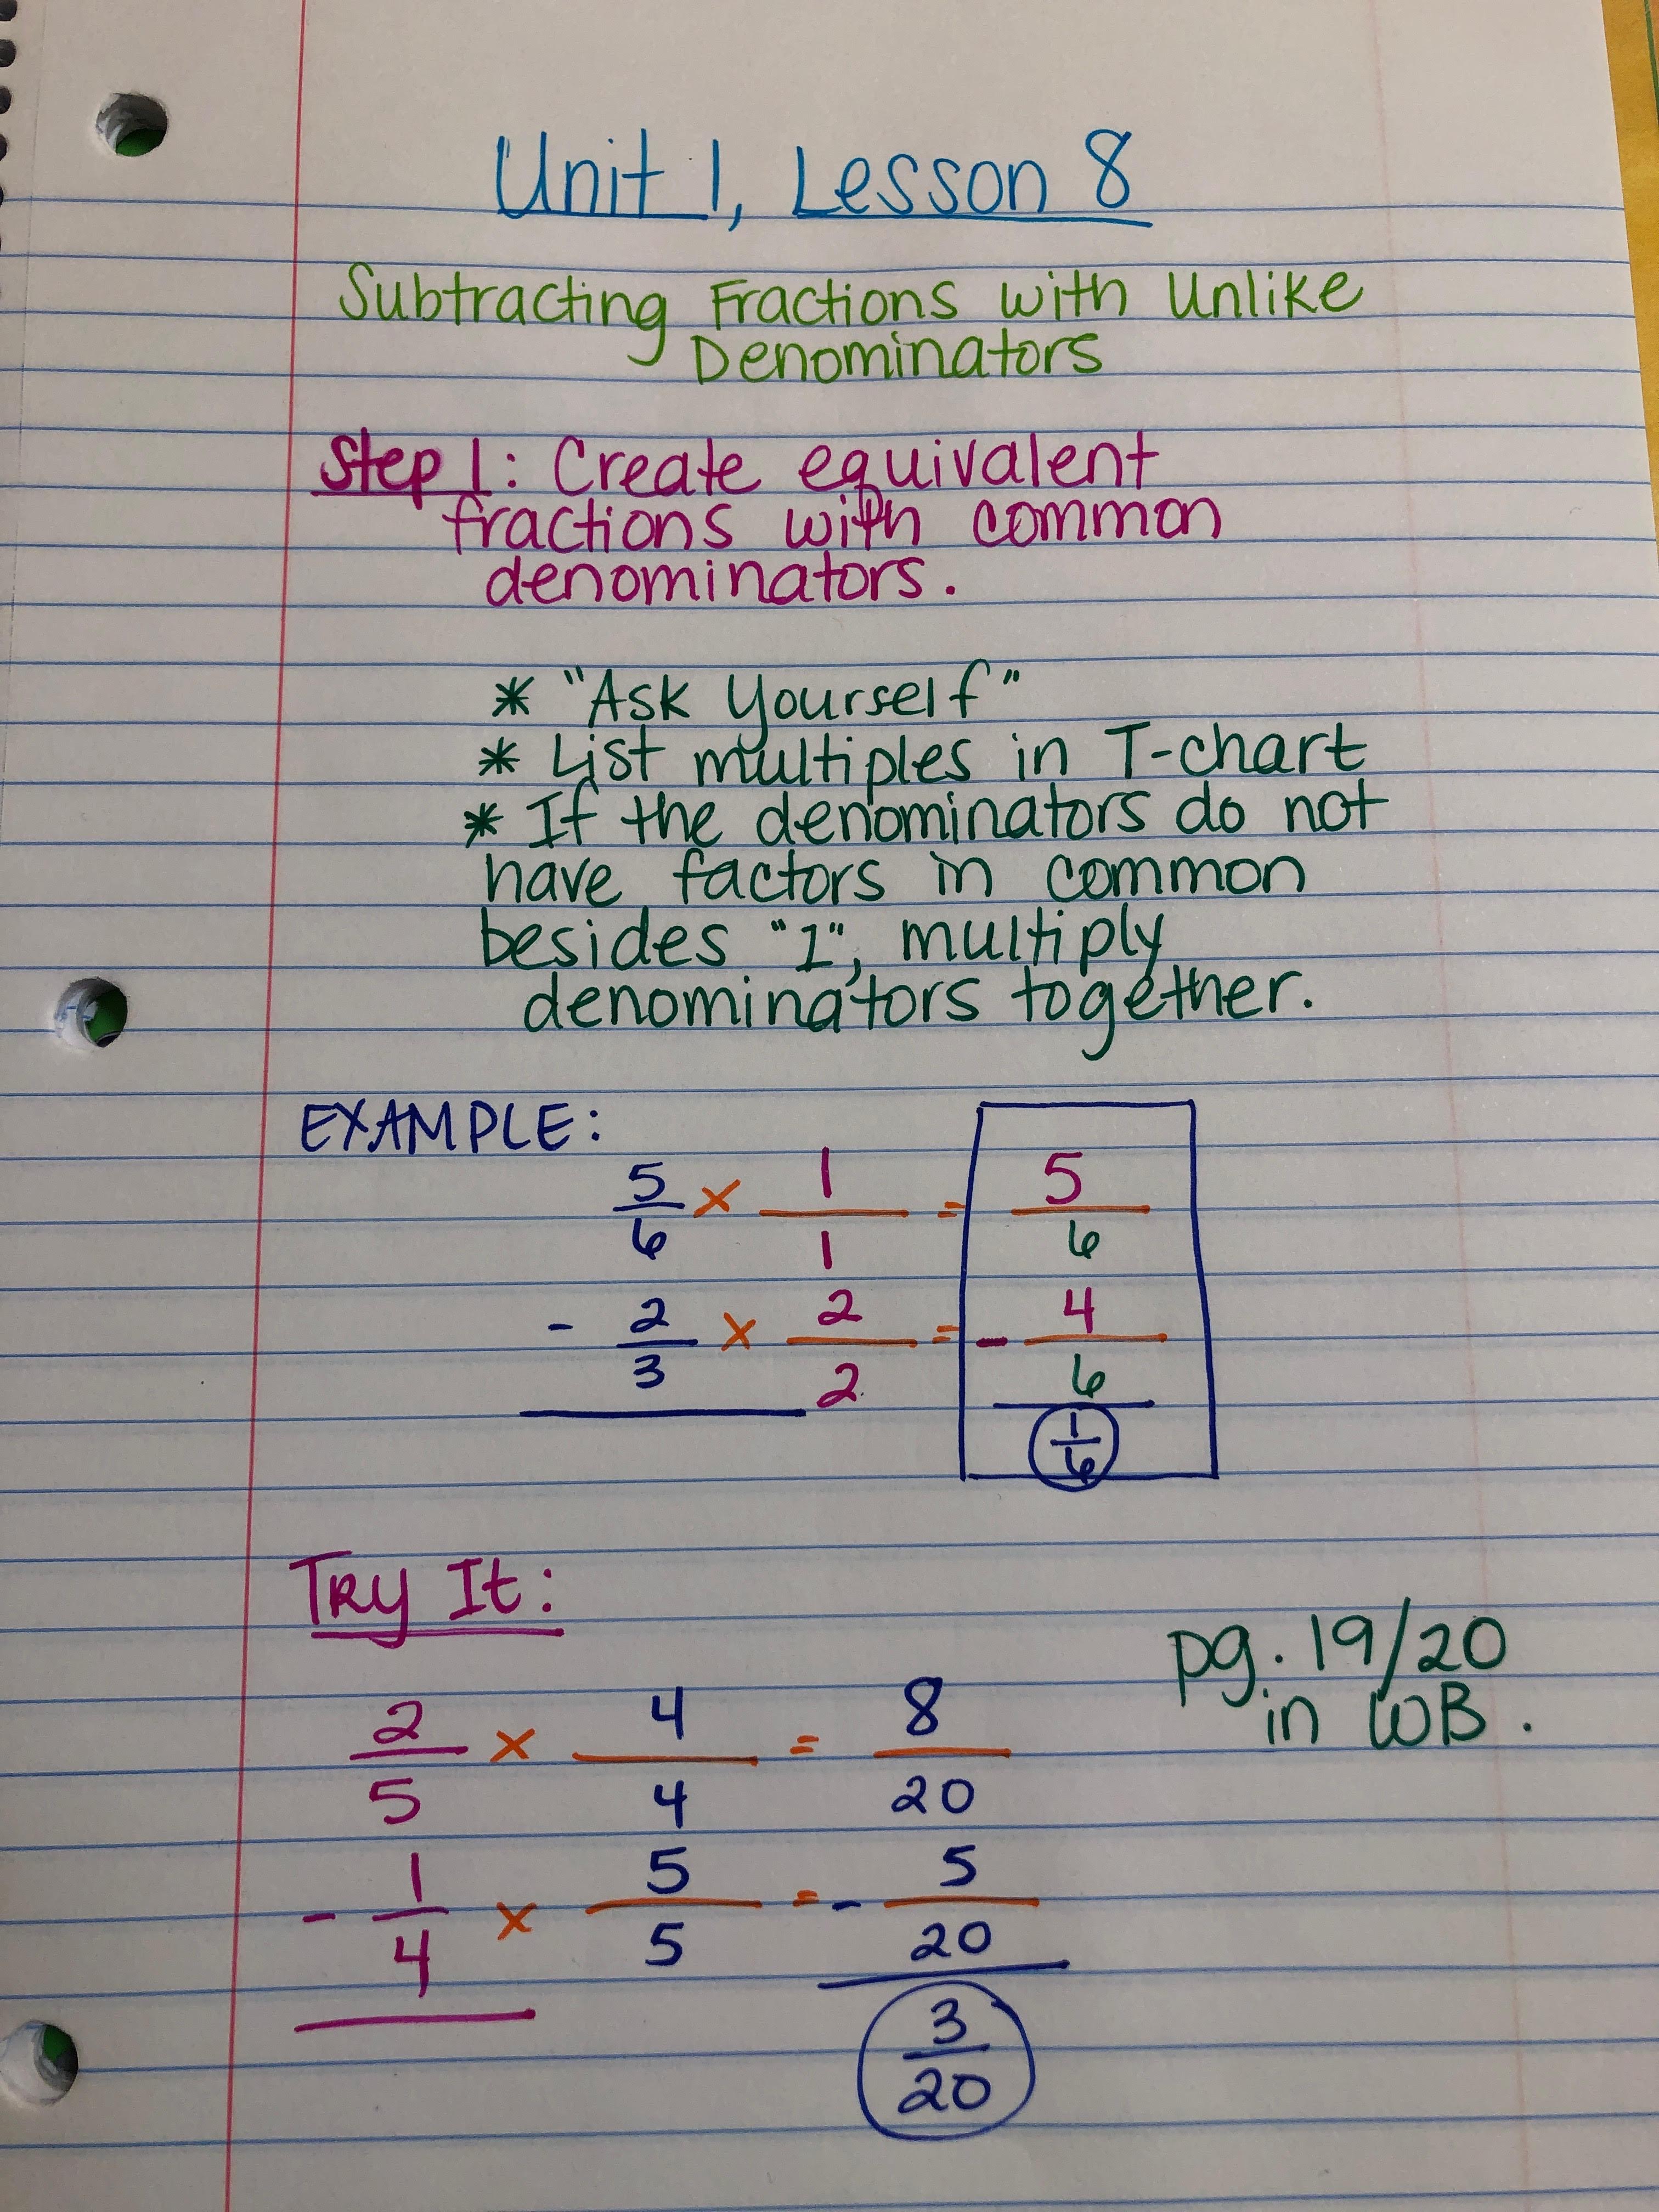 Unit 1, Lesson 8
Subtracting Fractions with Unlike
Denominators
Step 1: Create equivalent
fractions with common
denominators.
* "Ask Yourself"
* List multiples in T-chart
* If the denominators do not
have factors in common
besides "1", multiply
denominators together.
EXAMPLE:
5/6 × 1/1 = 5/6
- 2/3 × 2/2 = - 4/6
1/6
Try It:
pg. 19/20
in WB.
2/5 × 4/4 = 8/20
- 1/4 × 5/5 = - 5/20
3/20